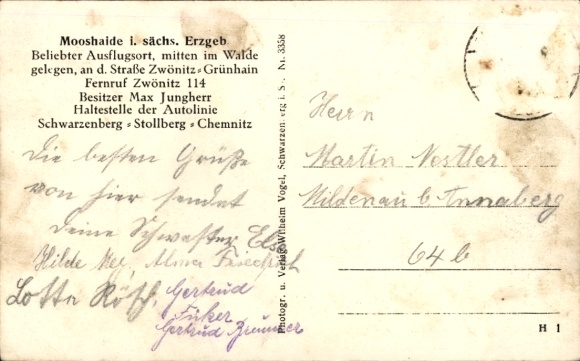 Mooshaide i. sächs. Erzgeb
Beliebter Ausflugsort, mitten im Walde
gelegen, an d. Straße Zwönitz-Grünhain
Fernruf Zwönitz 114
Besitzer Max Jungherr
Haltestelle der Autolinie
Schwarzenberg - Stollberg - Chemnitz
Die besten Grüße
von hier sendet
deine Schwester Else
Hilde Alma
Lotte Rösch, Gertrud
Gertrud
Photogr. u. Verlag Wilhelm Vogel, Schwarzenberg i. S. Nr. 3358
Herrn
Martin Nestler
Mildenau b. Annaberg
64 b
H 1